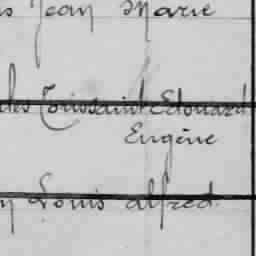 Jean Marie
Toussaint Edouard
Eugène
Louis Alfred